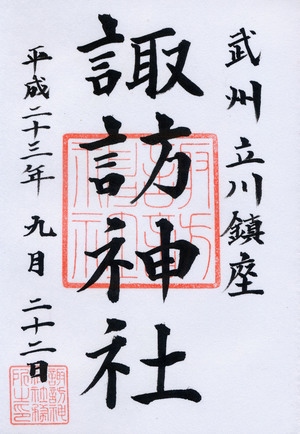 武州 立川鎮座
諏訪神社
平成二十三年 九月 二十二日
諏訪神社